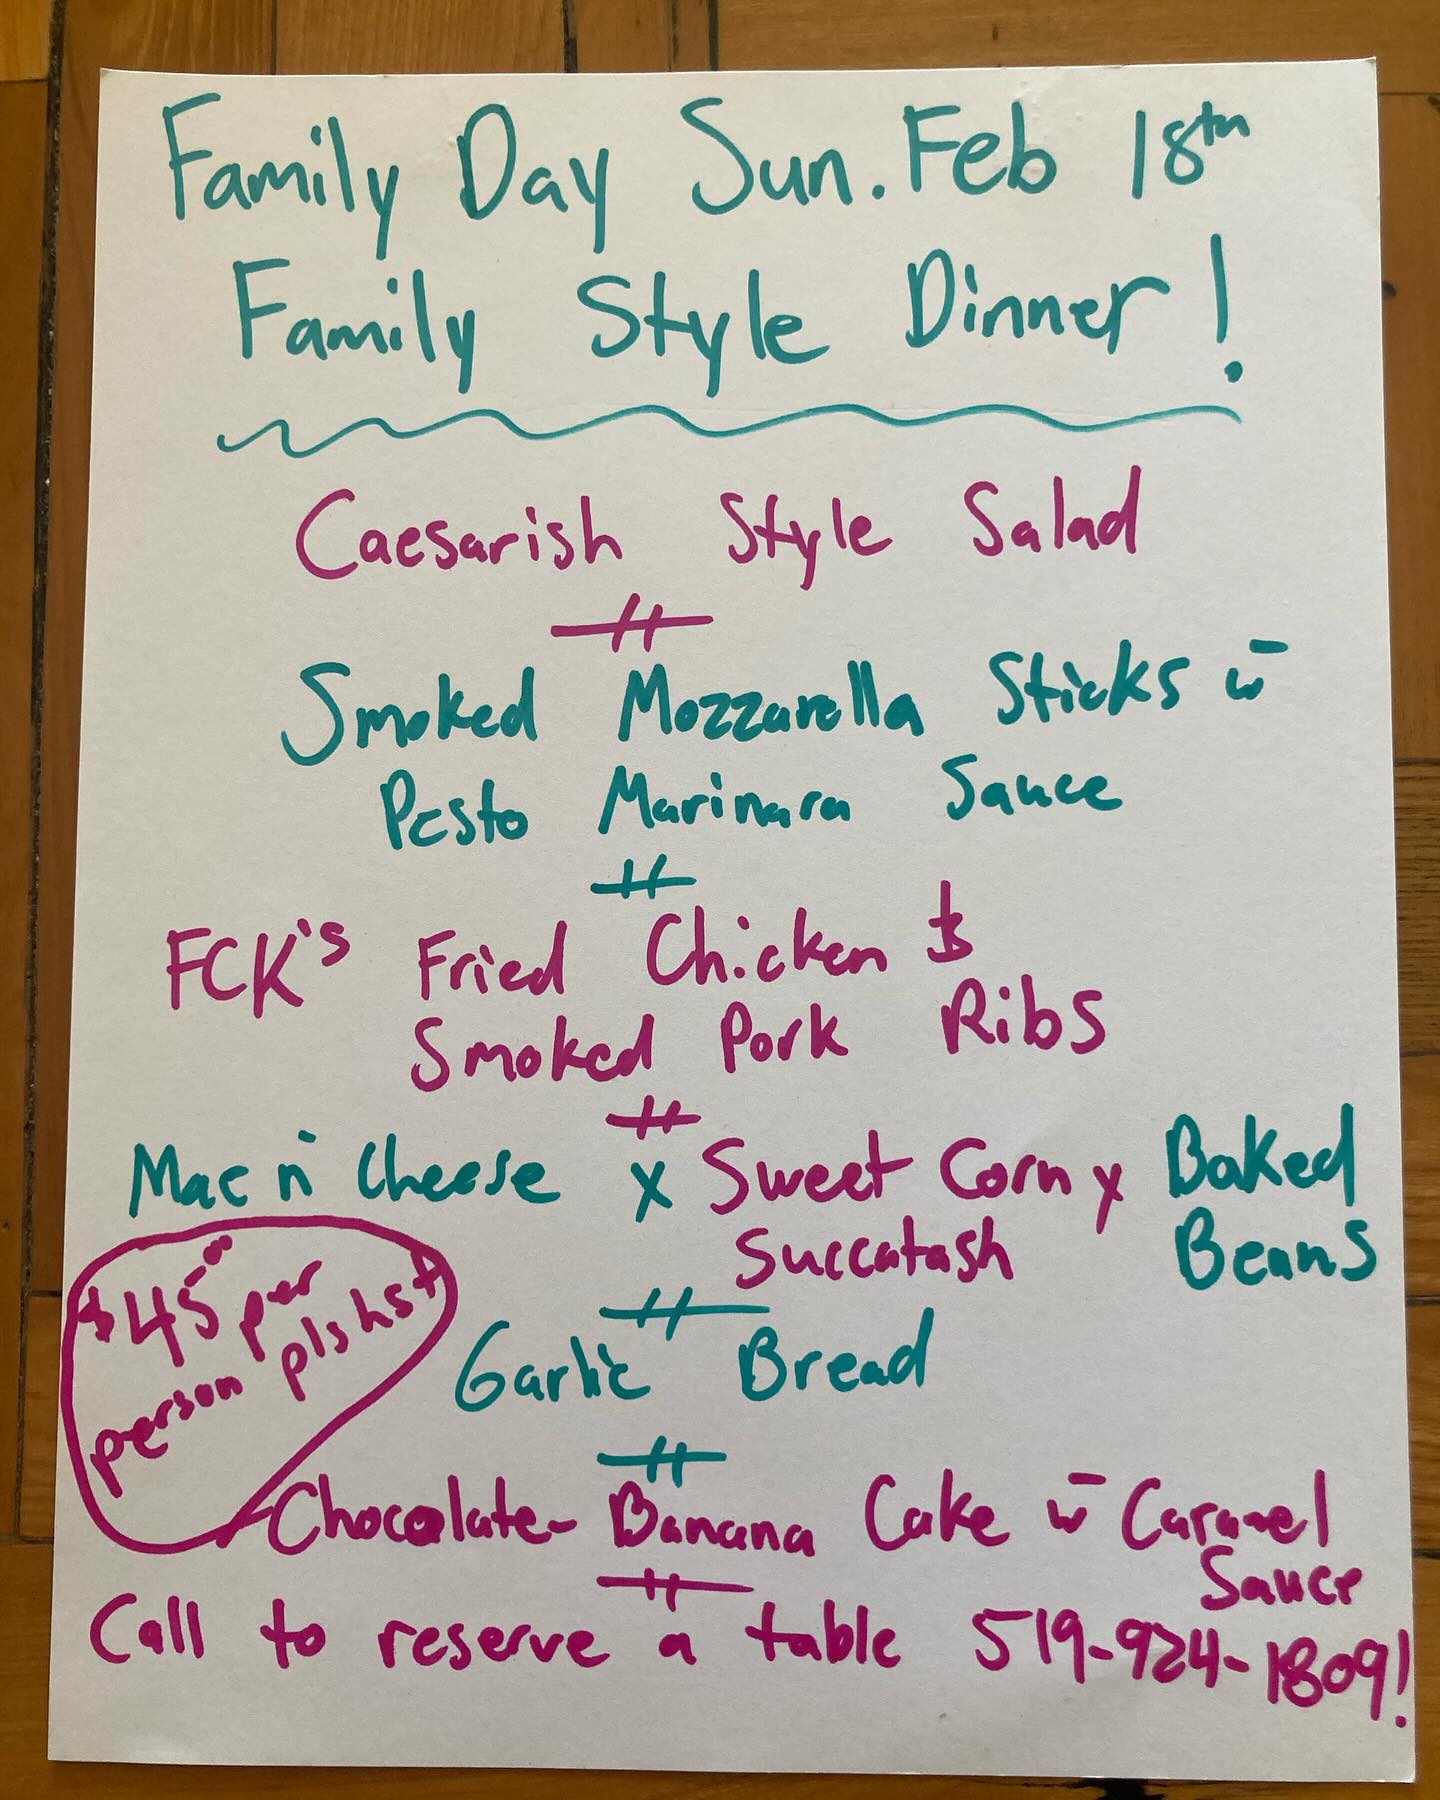 Family Day Sun. Feb 18th
Family Style Dinner!
Caesarish Style Salad
Smoked Mozzarella Sticks w
Pesto Marinara Sauce
FCK's Fried Chicken &
Smoked Pork Ribs
Mac n' Cheese x Sweet Corn x Baked
Succatash Beans
$45.00 per
person pls hst
Garlic Bread
Chocolate-Banana Cake w Caramel
Sauce
Call to reserve a table 519-924-1809!